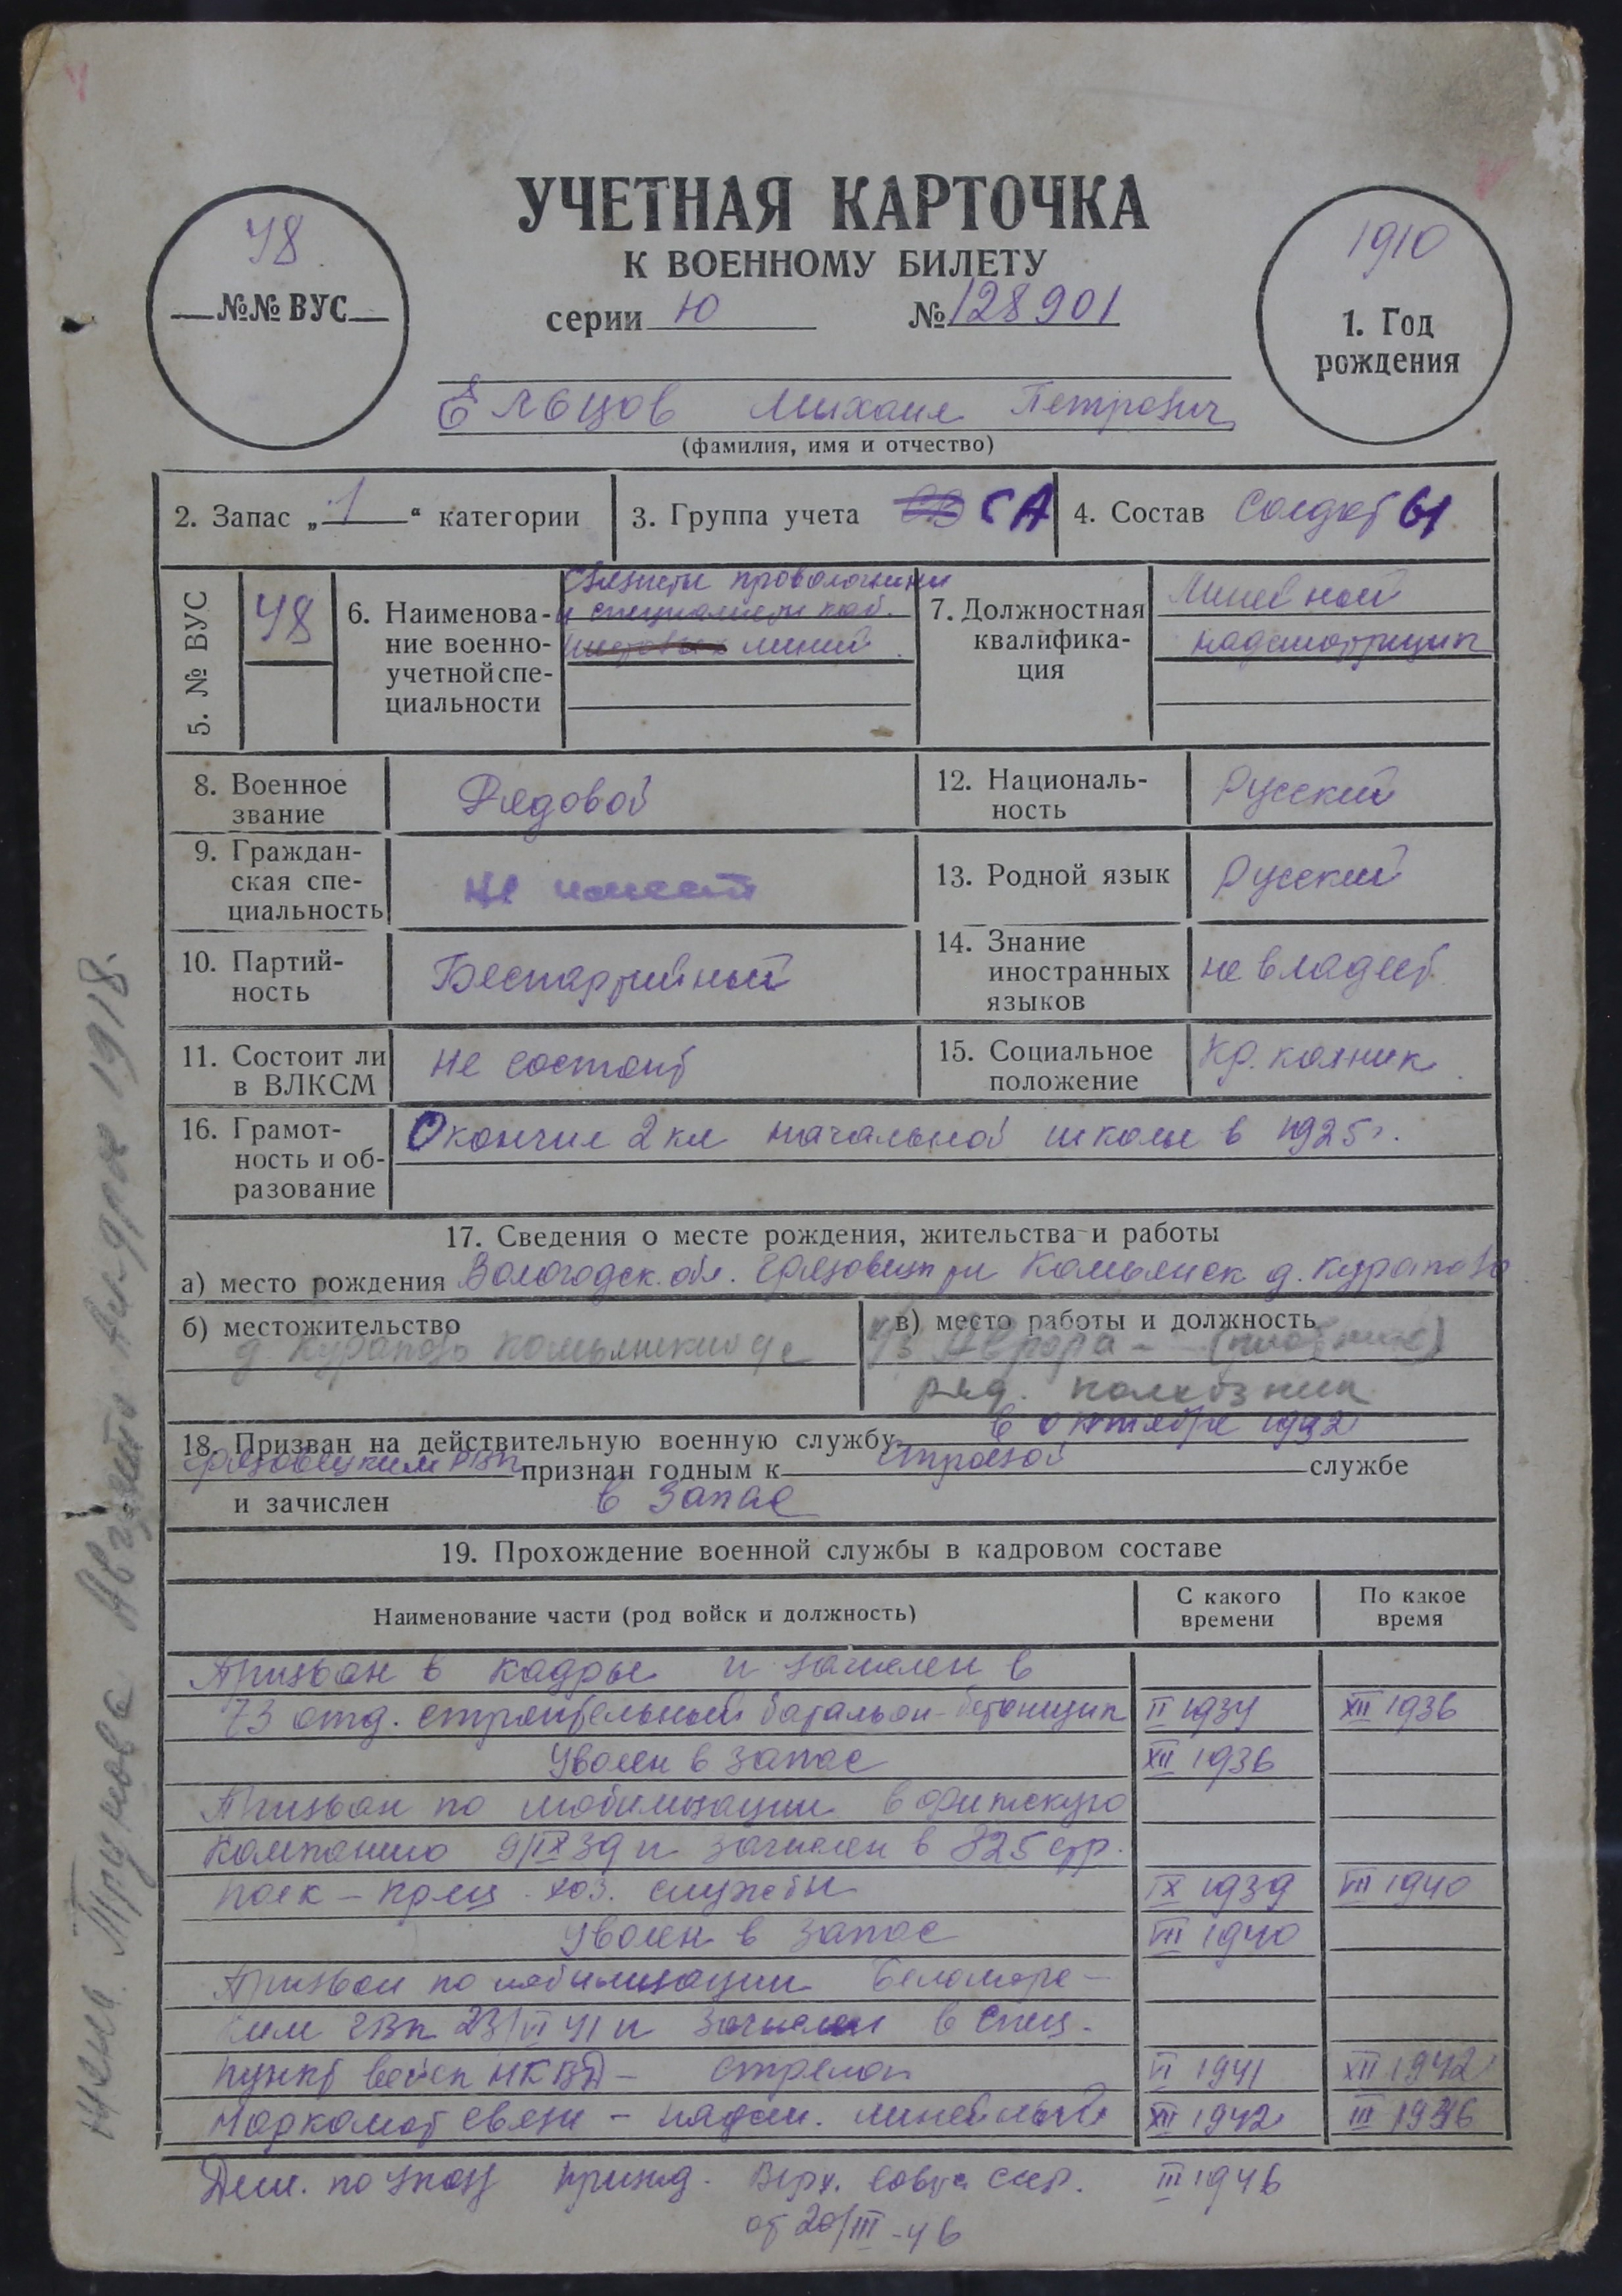 УЧЕТНАЯ КАРТОЧКА
К ВОЕННОМУ БИЛЕТУ
серии Ю № 128901
48
№№ ВУС
1910
1. Год
рождения
Ельцов Михаил Петрович
(фамилия, имя и отчество)
2. Запас „1“ категории
3. Группа учета СА
4. Состав Солдаты
5. № ВУС
48
6. Наименова-
ние военно-
учетной спе-
циальности
Связисты проволочники
и специалисты каб.
линий
7. Должностная
квалифика-
ция
Линейной
надсмотрщик
8. Военное
звание
Рядовой
12. Националь-
ность
Русский
9. Граждан-
ская спе-
циальность
Не имеет
13. Родной язык
Русский
10. Партий-
ность
Беспартийный
14. Знание
иностранных
языков
не владеет
11. Состоит ли
в ВЛКСМ
не состоит
15. Социальное
положение
Кр. колхник
16. Грамот-
ность и об-
разование
Окончил 2 кл начальной школы в 1925 г.
17. Сведения о месте рождения, жительства и работы
а) место рождения Вологодск. обл. Грязовецк р-н Комьянск д. Курапово
б) местожительство
д. Курапово Комьянский с
в) место работы и должность
Аврора –
ряд. колхозник
18. Призван на действительную военную службу в октябре 1942
Грязовецким РВК признан годным к строевой службе
и зачислен в запас
19. Прохождение военной службы в кадровом составе
Наименование части (род войск и должность)
С какого
времени
По какое
время
Призван в кадры и зачислен в
73 отд. строительный батальон – бетонщик II 1934 XII 1936
Уволен в запас XII 1936
Призван по мобилизации в финскую
компанию 9/IX 39 и зачислен в 325 стр.
полк – хоз. службы IX 1939 VII 1940
Уволен в запас VII 1940
Призван по мобилизации Беломорс-
ким ГВК 23/VI 41 и зачислен в спец.
пункт войск НКВД – стрелок VI 1941 XII 1942
Наркомат связи – надсм. линейный XII 1942 III 1946
Дем. по указу през. Верх. Совета СССР. III 1946
от 20/III-46
жена Трунова Августа Андрее 1918.